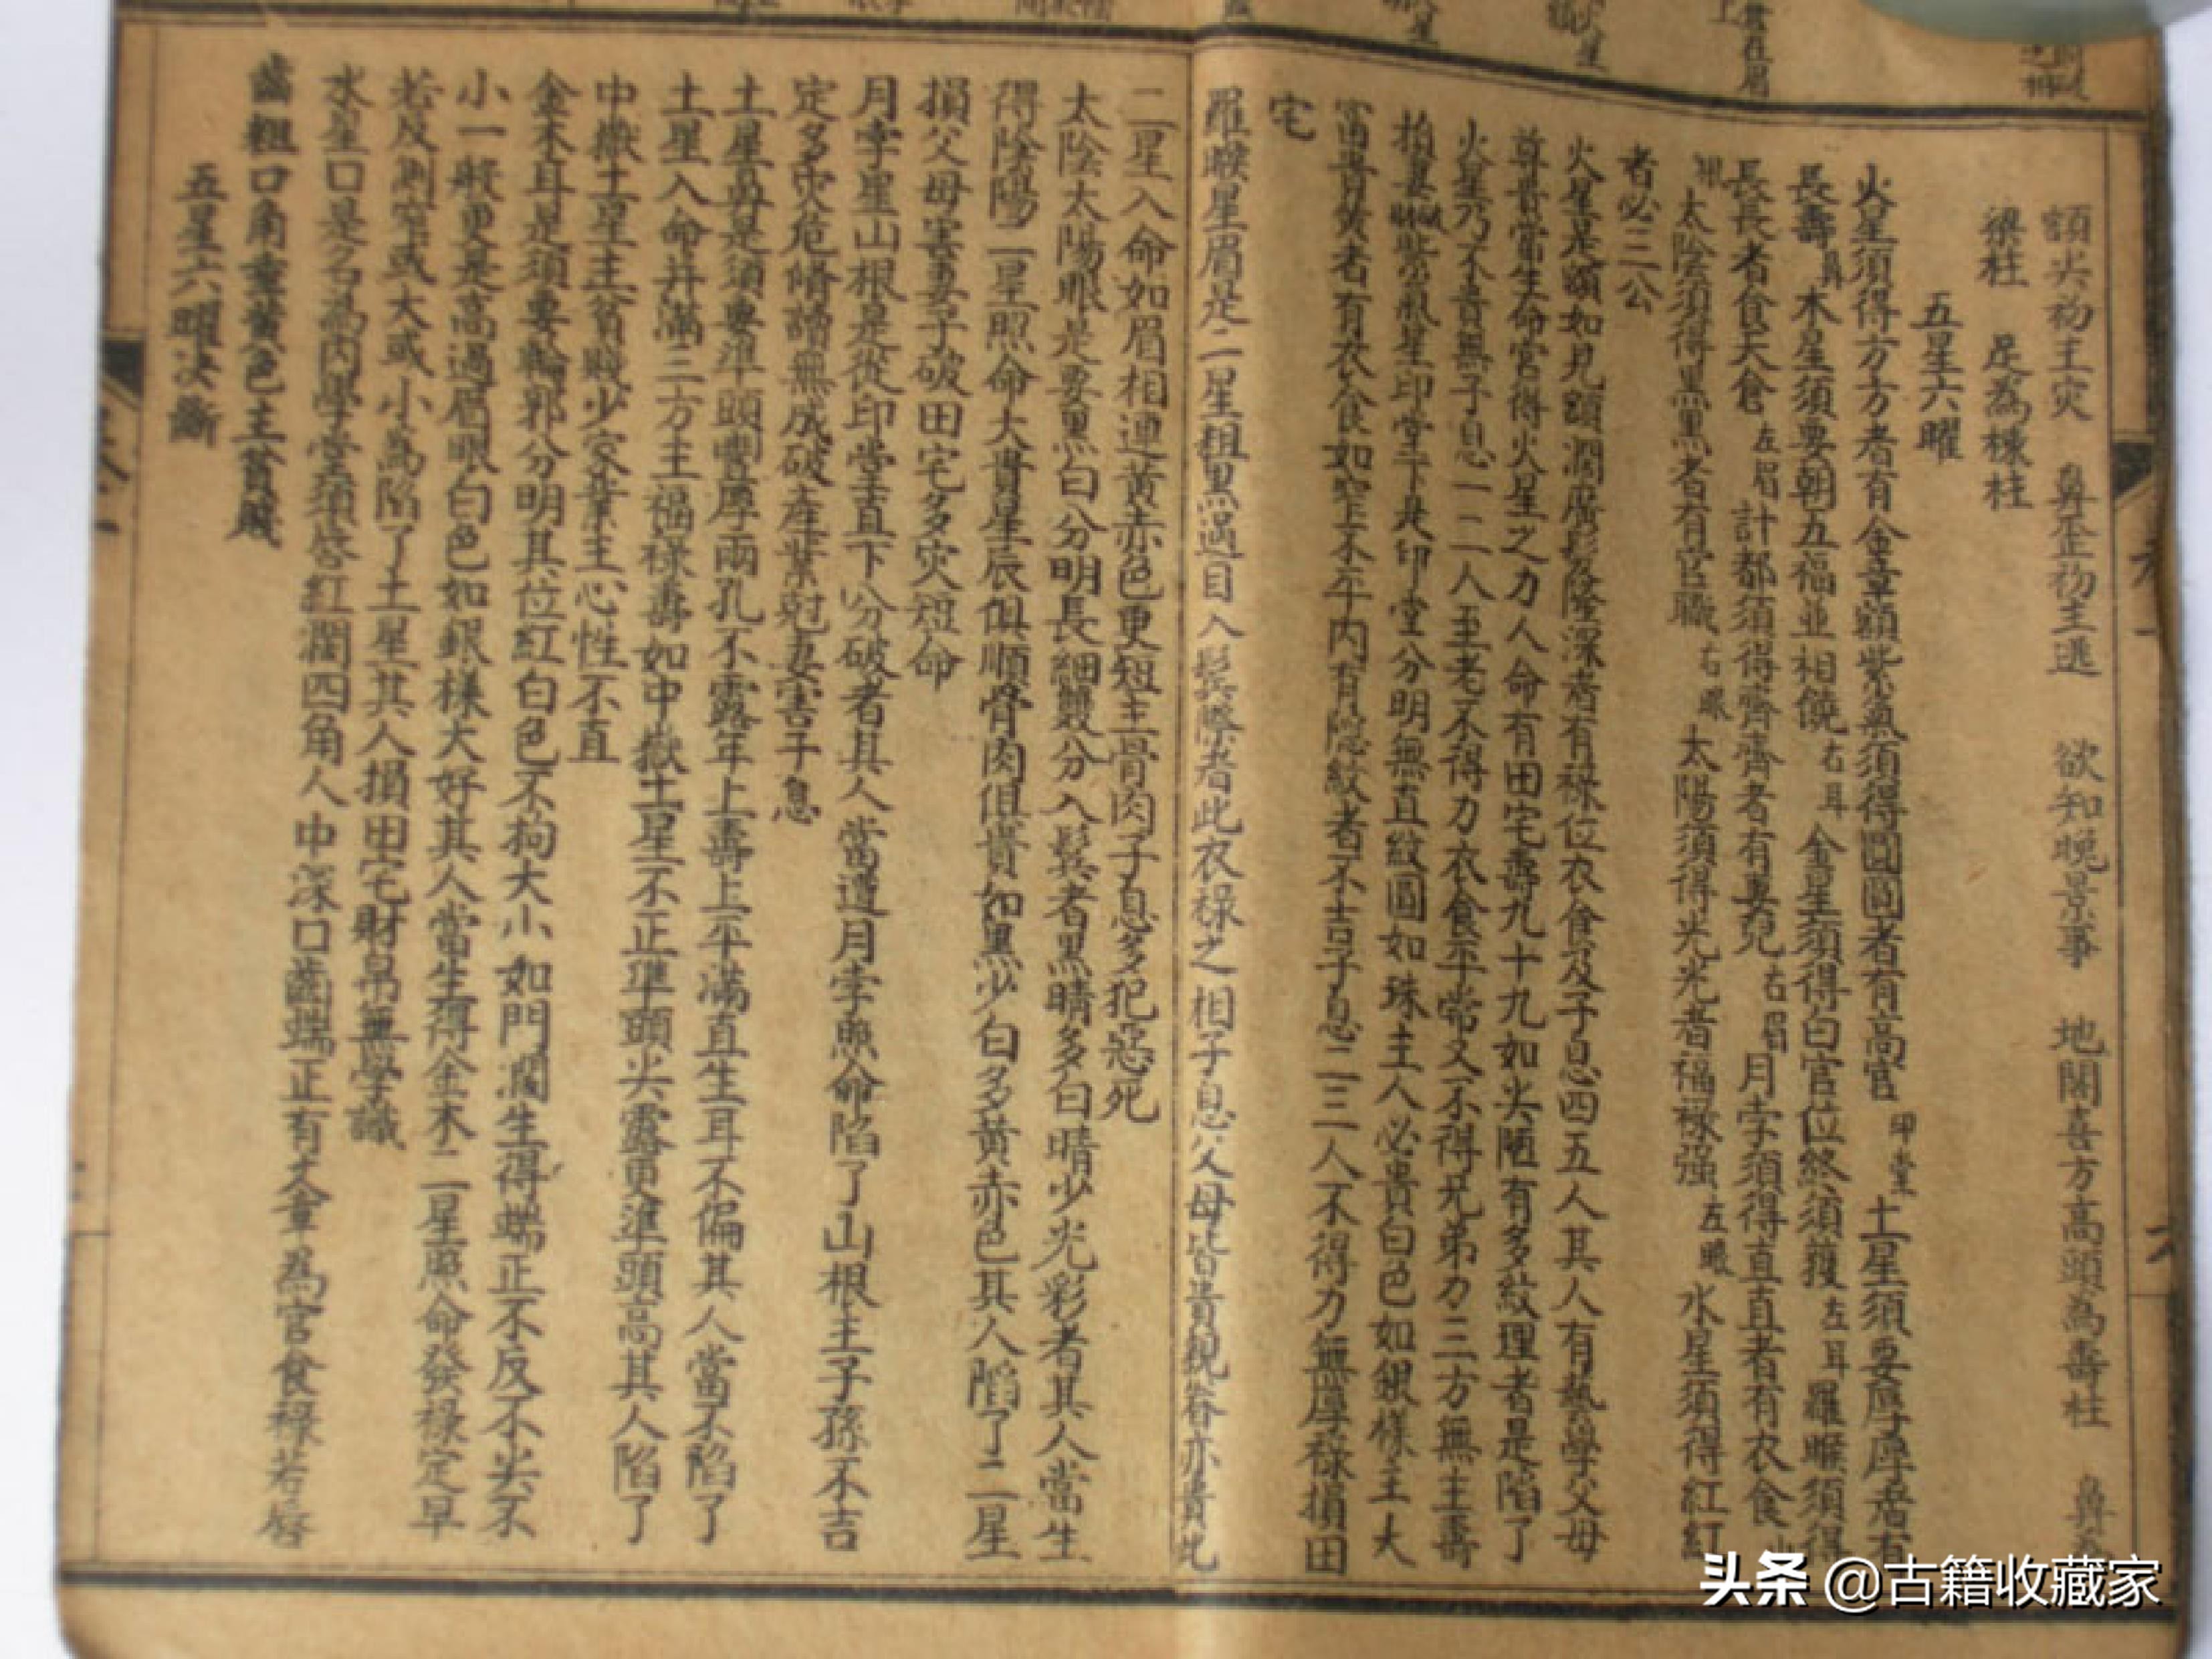 額尖初主灾　鼻歪初主逃　欲知晚景事　地閣喜方高頭為壽柱　鼻為
梁柱　足為棟柱
五星六曜
火星須得方方者有金章額紫氣須得圓圓者有高官印堂土星須要厚厚者有
長壽鼻木星須要朝五福並相饒右耳金星須得白官位終須獲左耳羅睺須得
長長者食天倉左眉計都須得齊齊者有妻兒右眉月孛須得直直者有衣食山
根太陰須得黑黑者有官職右眼太陽須得光光者福祿强左眼水星須得紅紅
者必三公
火星是額如見額濶廣髮隆深者有祿位衣食及子息四五人其人有藝學父母
尊貴當生命宮得火星之力人命有田宅壽九十九如尖陋有多紋理者是陷了
火星乃不貴無子息一二人至老不得力衣食平常又不得兄弟力三方無主壽
拍妻紫氣星印堂下是印堂分明無直紋圓如珠主人必貴白色如銀樣主大
富貴黄者有衣食如窄不平內有隱紋者不吉子息二三人不得力無厚祿損田
宅
羅睺星眉是二星粗黑過目入鬢際者此衣祿之相子息父母皆貴親眷亦貴此
二星入命如眉相連黄赤色更短主骨肉子息多犯惡死
太陰太陽眼是要黑白分明長細雙分入鬢者黑睛多白睛少光彩者其人當生
得陰陽二星照命大貴星辰俱順骨肉俱貴如黑少白多黄赤色其人陷了二星
損父母害妻子破田宅多灾短命
月孛星山根是從印堂直下分破者其人當遭月孛照命陷了山根主子孫不吉
定多灾危脩讀無成破產業尅妻害子息
土星鼻是須要準頭豐厚兩孔不露年上壽上平滿直生耳不偏其人當不陷了
土星入命并滿三方主福祿壽如中嶽土星不正準頭尖露更準頭高其人陷了
中嶽土星主貧賤少家業主心性不直
金木耳是須要輪郭分明其位紅白色不拘大小如門濶生得端正不反不尖不
小一般更是高過眉眼白色如銀樣大好其人當生得金木二星照命發祿定早
若反側窄或大或小為陷了土星其人損田宅財帛無學識
水星口是名為內學堂須唇紅濶四角人中深口齒端正有文章為官食祿若唇
齒粗口角垂黄色主貧賤
五星六曜决斷
头条 @古籍收藏家